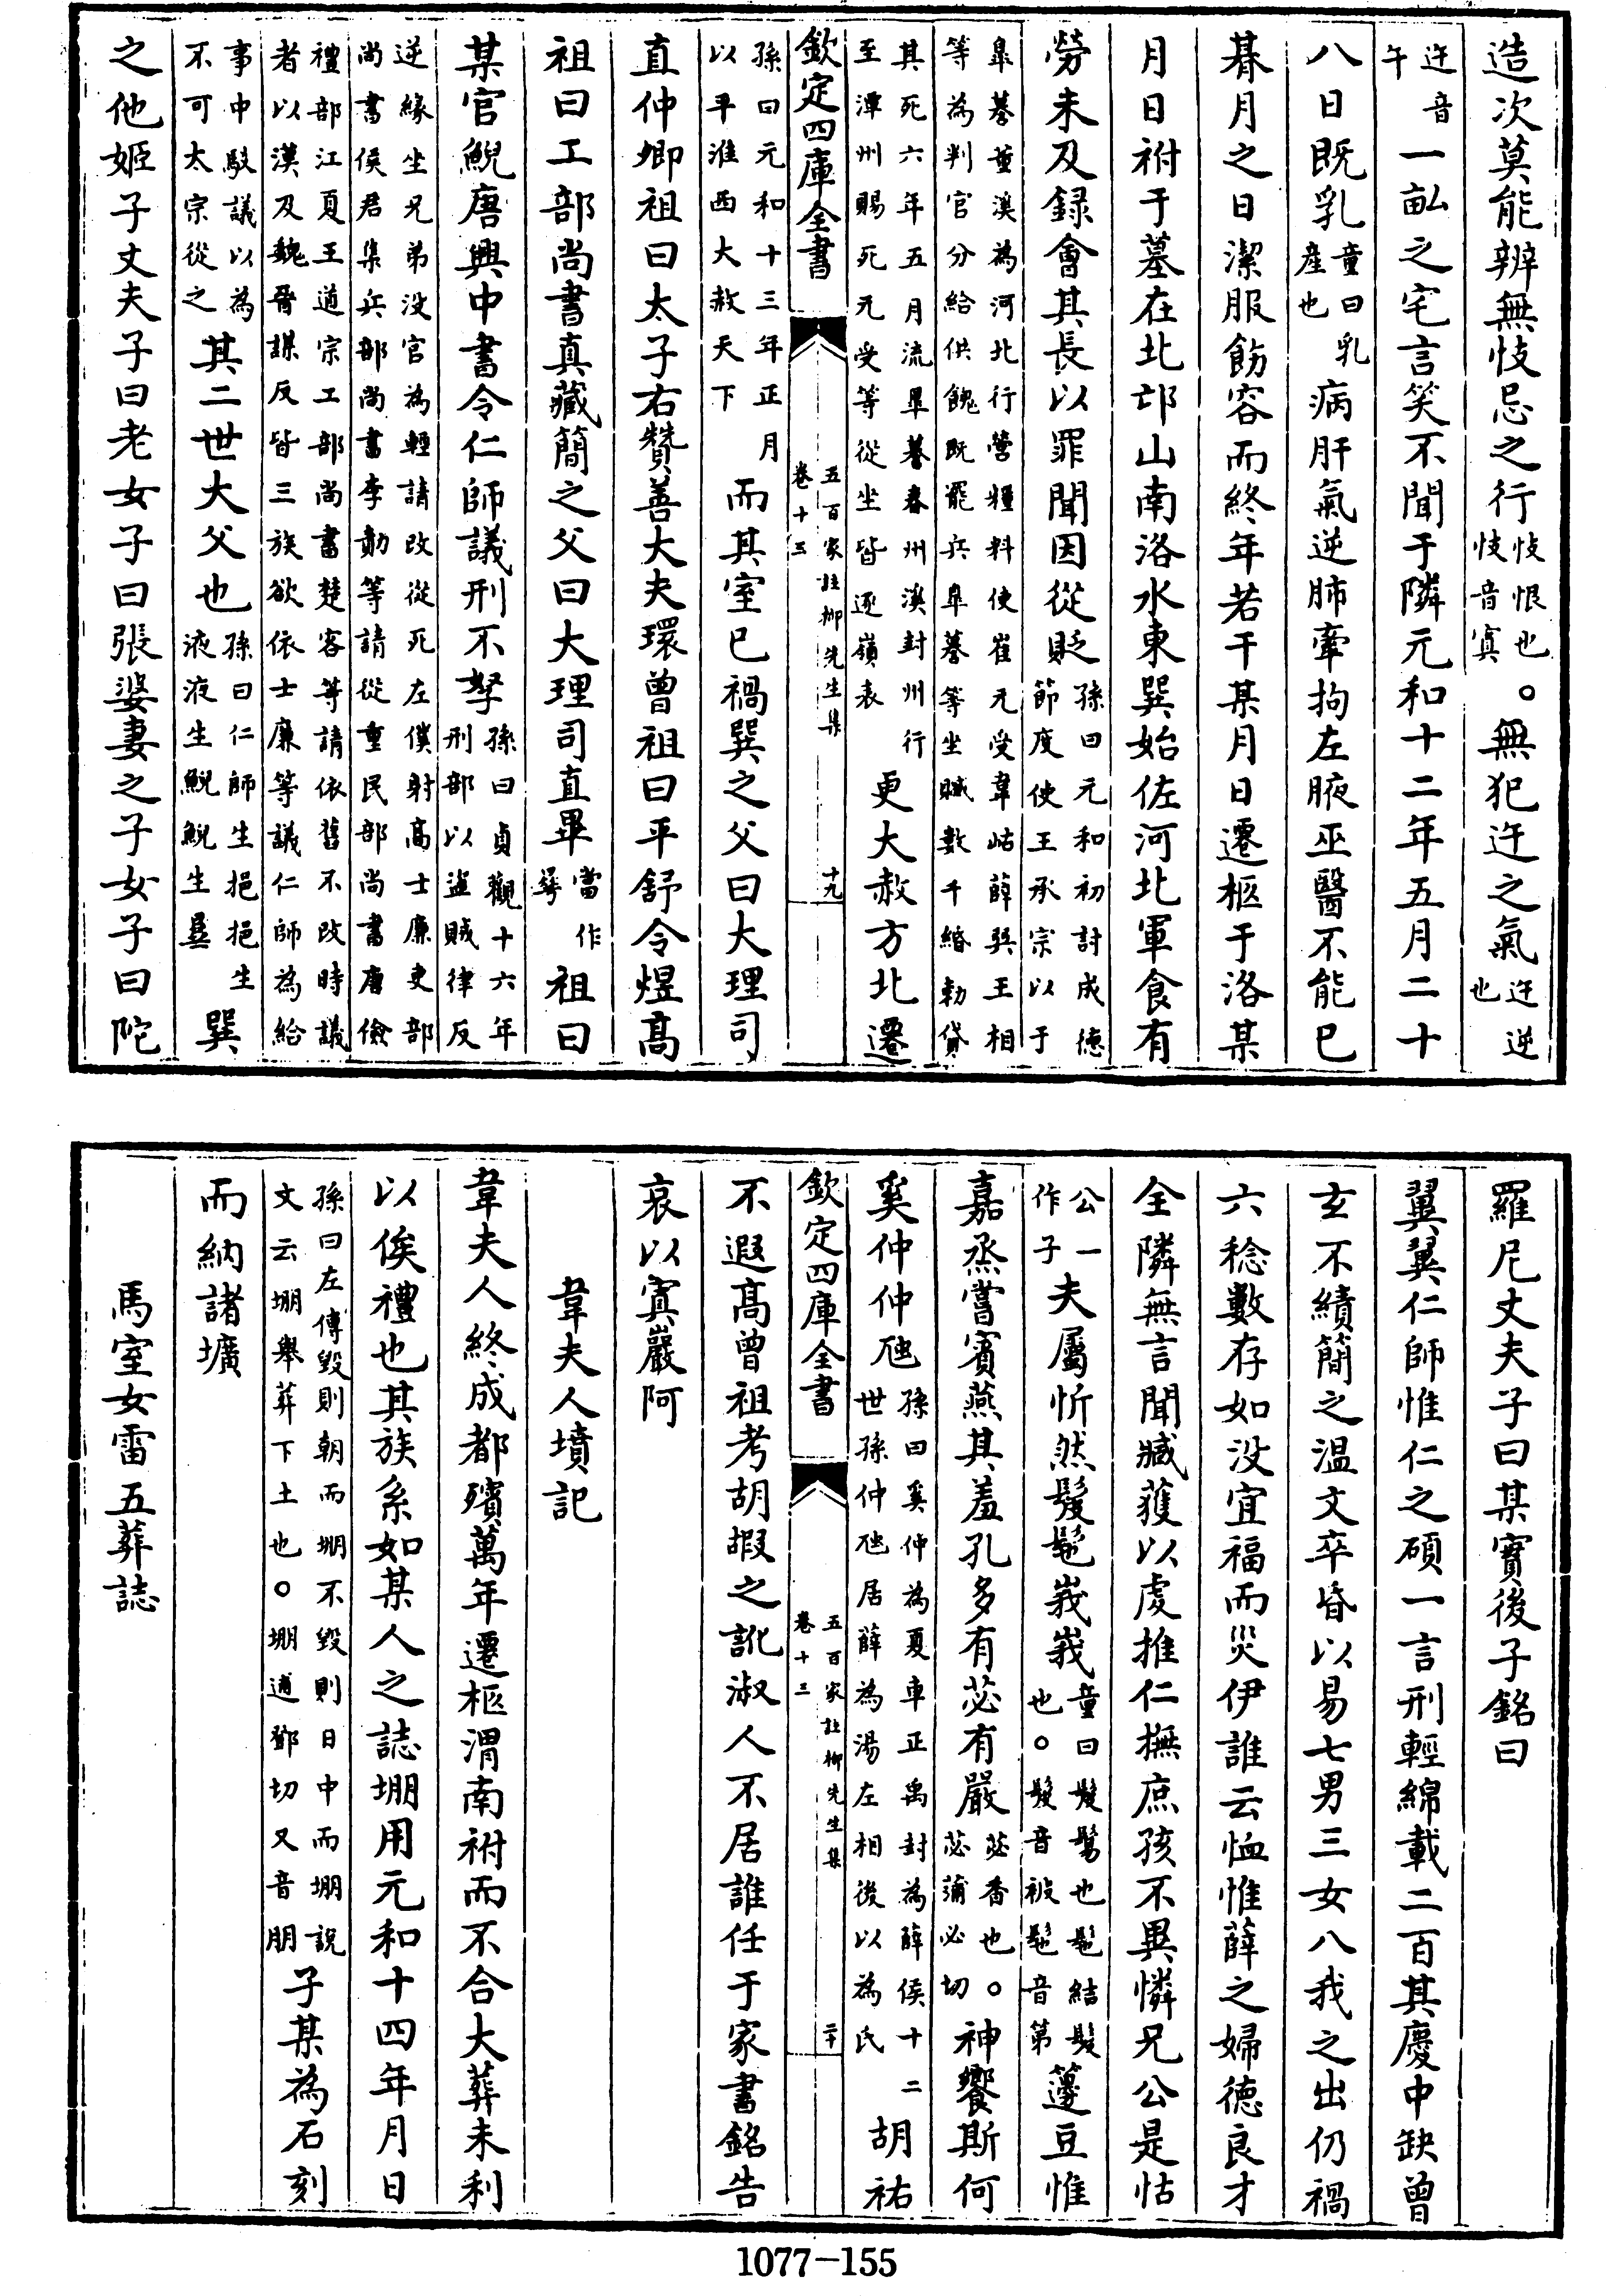 造次莫能辨無忮忌之行忮恨也忮音寘。無犯迕之氣迕逆也
迕音午一畝之宅言笑不聞于隣元和十二年五月二十
八日既乳童曰乳産也病肝氣逆肺牽拘左腋巫醫不能已
朞月之日潔服飭容而終年若干某月日遷柩于洛某
月日祔于墓在北邙山南洛水東巽始佐河北軍食有
勞未及録會其長以罪聞因從貶孫曰元和初討成德節度使王承宗以于
臯謩董溪為河北行營糧料使崔元受韋岵薛巽王相等為判官分給供餽既罷兵臯謩等坐贓數千緡勅貸
其死六年五月流臯謩春州溪封州行至潭州賜死元受等從坐皆逐嶺表更大赦方北遷
欽定四庫全書
五百家註柳先生集
卷十三
十九
孫曰元和十三年正月以平淮西大赦天下而其室已禍巽之父曰大理司
直仲卿祖曰太子右贊善大夫環曾祖曰平舒令煜高
祖曰工部尚書真藏簡之父曰大理司直畢當作曅祖曰
某官鯢唐興中書令仁師議刑不孥孫曰貞觀十六年刑部以盜賊律反
逆緣坐兄弟没官為輕請改從死左僕射高士廉吏部尚書侯君集兵部尚書李勣等請從重民部尚書唐儉
禮部江夏王道宗工部尚書楚客等請依舊不改時議者以漢及魏晉謀反皆三族欲依士廉等議仁師為給
事中駮議以為不可太宗從之其二世大父也孫曰仁師生挹挹生液液生鯢鯢生曅巽
之他姬子丈夫子曰老女子曰張婆妻之子女子曰陀
羅尼丈夫子曰某實後子銘曰
翼翼仁師惟仁之碩一言刑輕綿載二百其慶中缺曾
玄不績簡之温文卒昏以易七男三女八我之出仍禍
六稔數存如没宜福而災伊誰云恤惟薛之婦德良才
全隣無言聞臧獲以虔推仁撫庶孩不異憐兄公是怙
公一作子夫屬忻然髲髢峩峩童曰髲鬄也髢結髮也。髲音被髢音第籩豆惟
嘉烝嘗賓燕其羞孔多有苾有嚴苾香也。苾蒲必切神饗斯何
奚仲仲虺孫曰奚仲為夏車正禹封為薛侯十二世孫仲虺居薛為湯左相後以為氏胡祐
欽定四庫全書
五百家註柳先生集
卷十三
二十
不遐高曾祖考胡嘏之訛淑人不居誰任于家書銘告
哀以寘巖阿
韋夫人墳記
韋夫人終成都殯萬年遷柩渭南祔而不合大葬未利
以俟禮也其族系如某人之誌堋用元和十四年月日
孫曰左傳毀則朝而堋不毀則日中而堋說文云堋舉葬下土也。堋逋鄧切又音朋子某為石刻
而納諸壙
馬室女雷五葬誌
1077-155